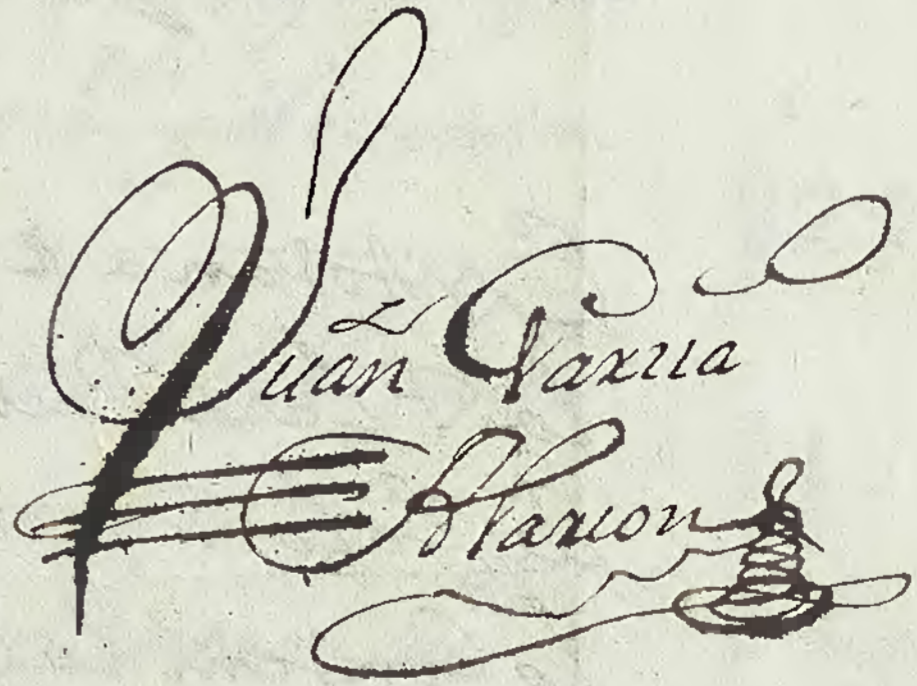 Juan Garcia
Alarcon